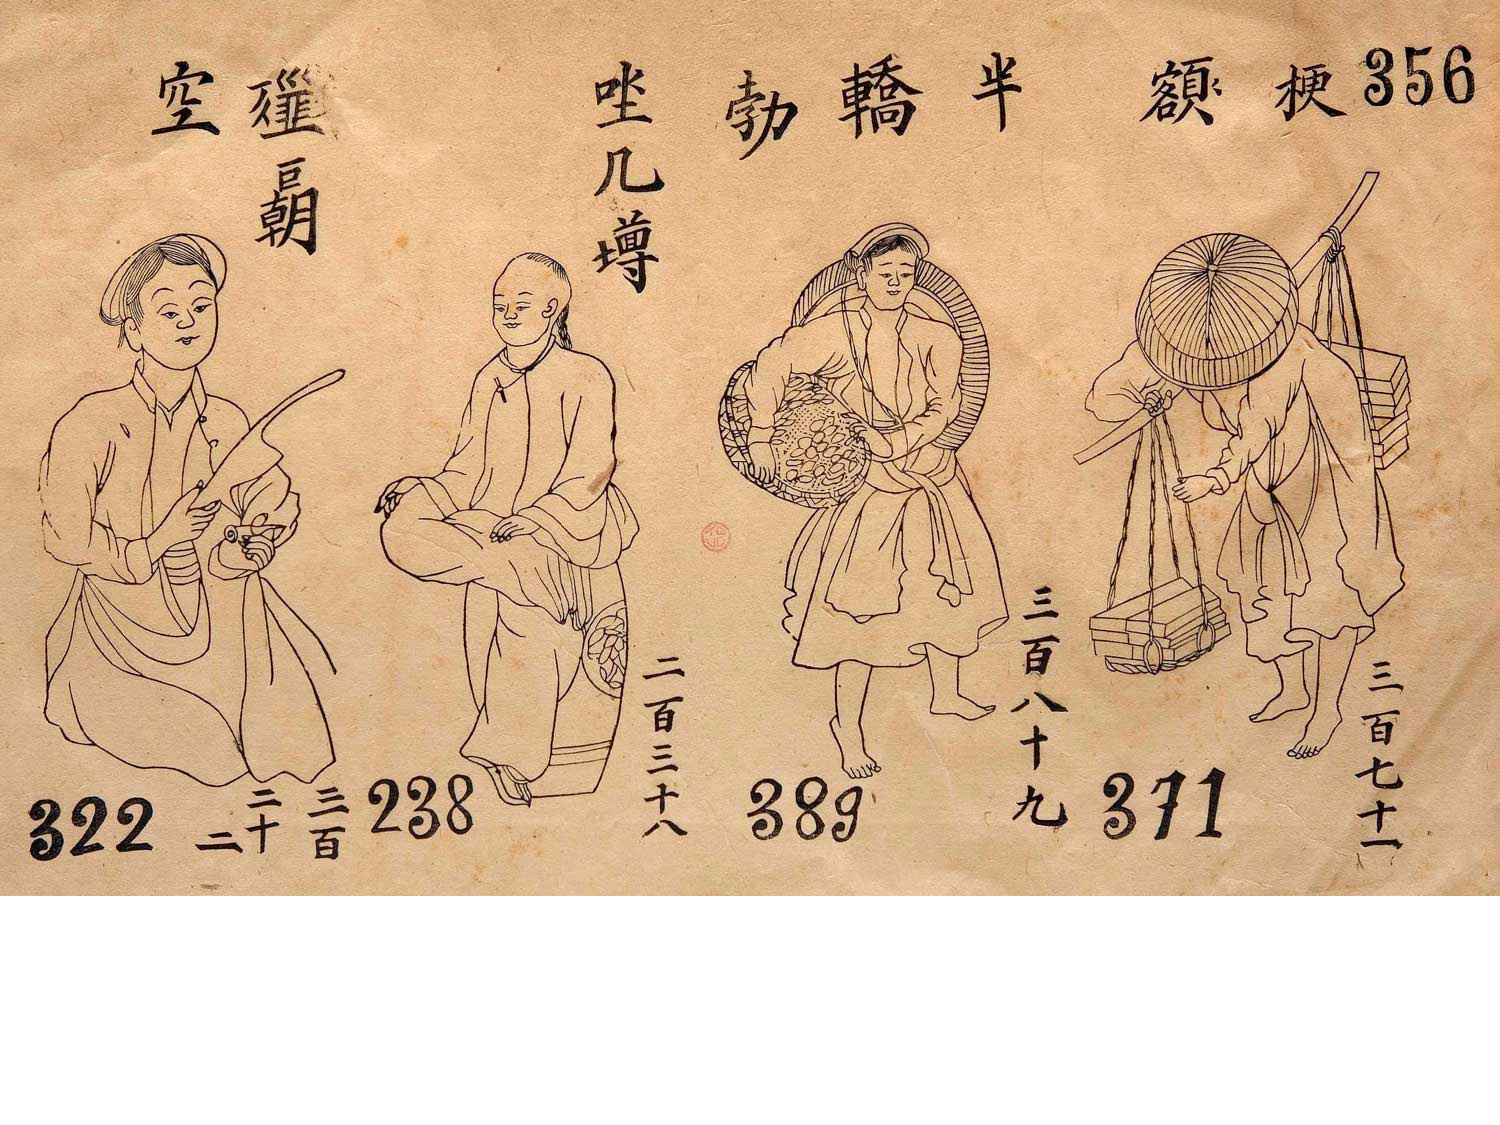 356
梗
額
三百七十一
371
半
轎
勃
三百八十九
389
㘴几墫
二百三十八
238
空
三百
二十
二
322